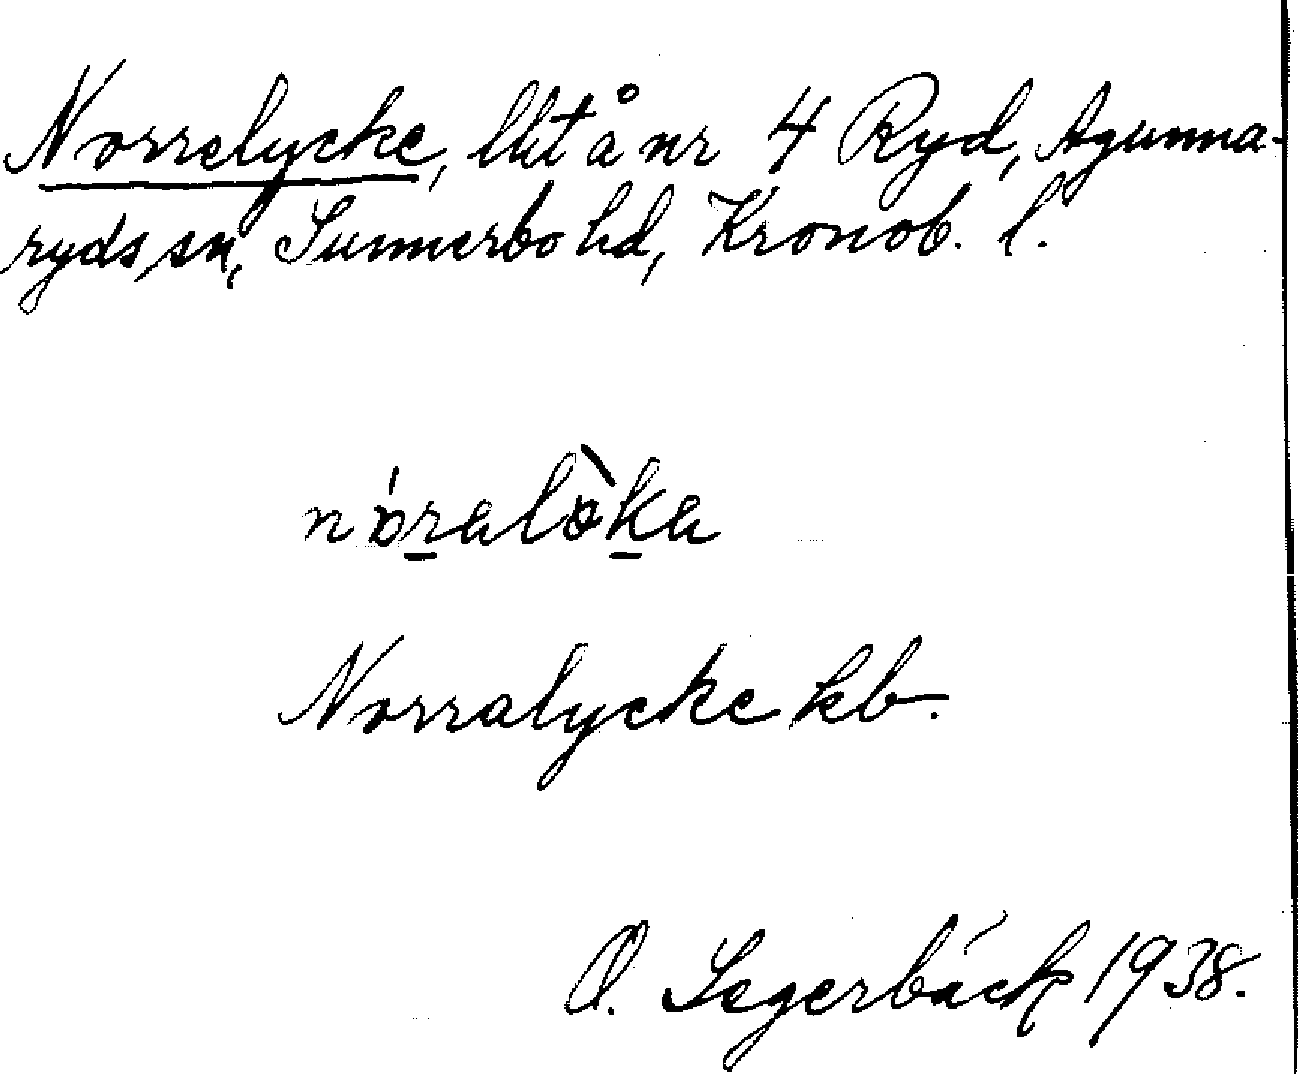 Norrelycke, lht å nr 4 Ryd, Agunna-
ryds sn, Sunnerbo hd, Kronob. l.
nóralò̀ka
Norralycke kb.
O. Segerbäck 1938.